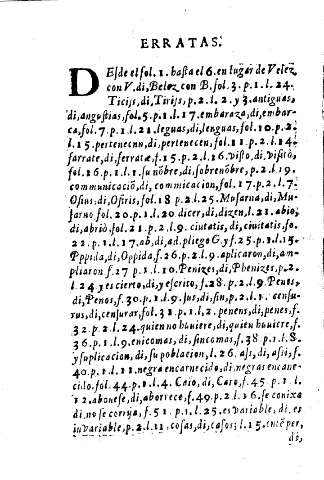 ERRATAS.
DEsde el fol. 1. hasta el 6. en lugar de Velez
con V. di, Belez con B. fol. 3. p. 1. l. 24.
Ticijs, di, Tirijs, p. 2. l. 2. y 3. antiguas,
di, angustias, fol. 5. p. 1. l. 17. embaraza, di, embar-
ca, fol. 7. p. 1. l. 21. leguas, di, lenguas, fol. 10. p. 2.
l. 15. pertenecnn, di, pertenecen, fol. 11. p. 2. l. 14.
farrate, di, ferratæ, f. 15. p. 2. l. 16. visto, di, visitò,
fol. 16. p. 1. l. 1. su nõbre, di, sobrenõbre, p. 2. l. 19.
communicaciõ, di, commicacion, fol. 17. p. 2. l. 7.
Osius, di, Osiris, fol. 18. p. 2. l. 25. Musarna, di, Mu-
sarno fol. 20. p. 1. l. 20. dicer, di, dizen, l. 21. abio,
di, abriò, fol. 21. p. 2. l. 9. ciutatis, di, ciuitatis, fo.
22. p. 1. l. 17. ab, di, ad. pliego G. y f. 25. p. 1. l. 15.
Pppida, di, Oppida, f. 26. p. 2. l. 9. aplicaron, di, am-
pliaron f. 27. p. 1. l. 10. Penizes, di, Phenizes, p. 2.
l. 24. y es cierto, di, y escrito, f. 28. p. 2. l. 9. Penes,
di, Penos, f. 30. p. 1. l. 9. sus, di, sin, p. 2. l. 1. censu-
rus, di, censurar, fol. 31. p. 1. l. 2. penens, di, penes, f.
32. p. 2. l. 24. quien no huuiere, di, quien huuiere, f.
36. p. 1. l. 9. enicomas, di, sincomas, f. 38. p. 1. l. 8.
y suplicacion, di, su poblacion, l. 26. ass, di, assi, f.
40. p. 1. l. 11. negra encarnecido, di, negras encane-
cido. fol. 44. p. 1. l. 4. Caio, di, Caro, f. 45. p. 1. l.
12. abonese, di, aborrece, f. 49. p. 2. l. 16. se conixa
di, no se corrija, f. 51. p. 1. l. 25. es variable, di, es
inuariable, p. 2. l. 11. cosas, di, casos; l. 15. entẽ per,
di,